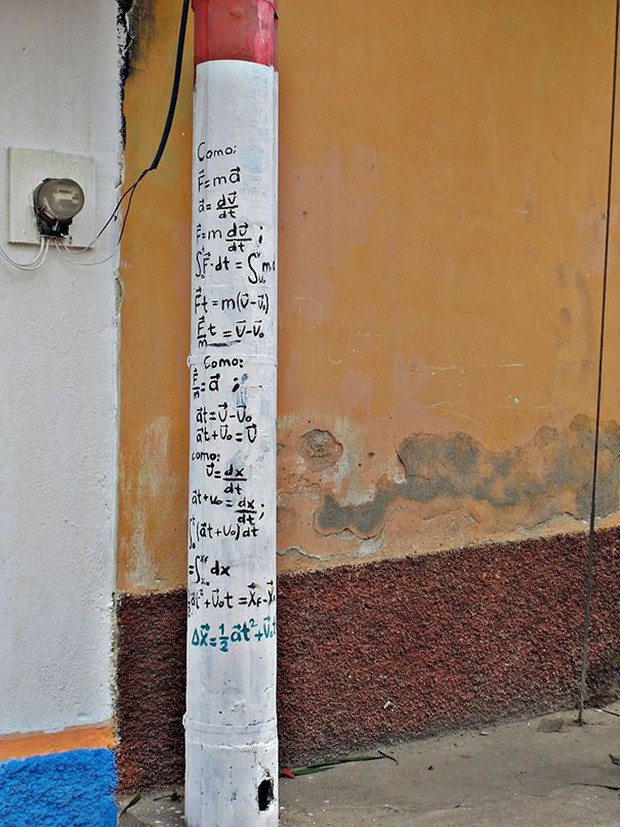 Como:
F⃗=ma⃗
a⃗=dv⃗/dt
F⃗=m dv⃗/dt;
∫₀ᵗF⃗·dt=∫ᵥ₀ᵛm
F⃗t=m(v⃗-v⃗₀)
F⃗/m t=v⃗-v⃗₀
Como:
F⃗/m=a⃗;
a⃗t=v⃗-v⃗₀
a⃗t+v⃗₀=v⃗
como:
v⃗=dx/dt
a⃗t+v₀=dx/dt;
∫₀ᵗ(a⃗t+v₀)dt
=∫dx
a⃗t²+v⃗₀t=x⃗F-x⃗
Δx⃗=1/2a⃗t²+v⃗₀t